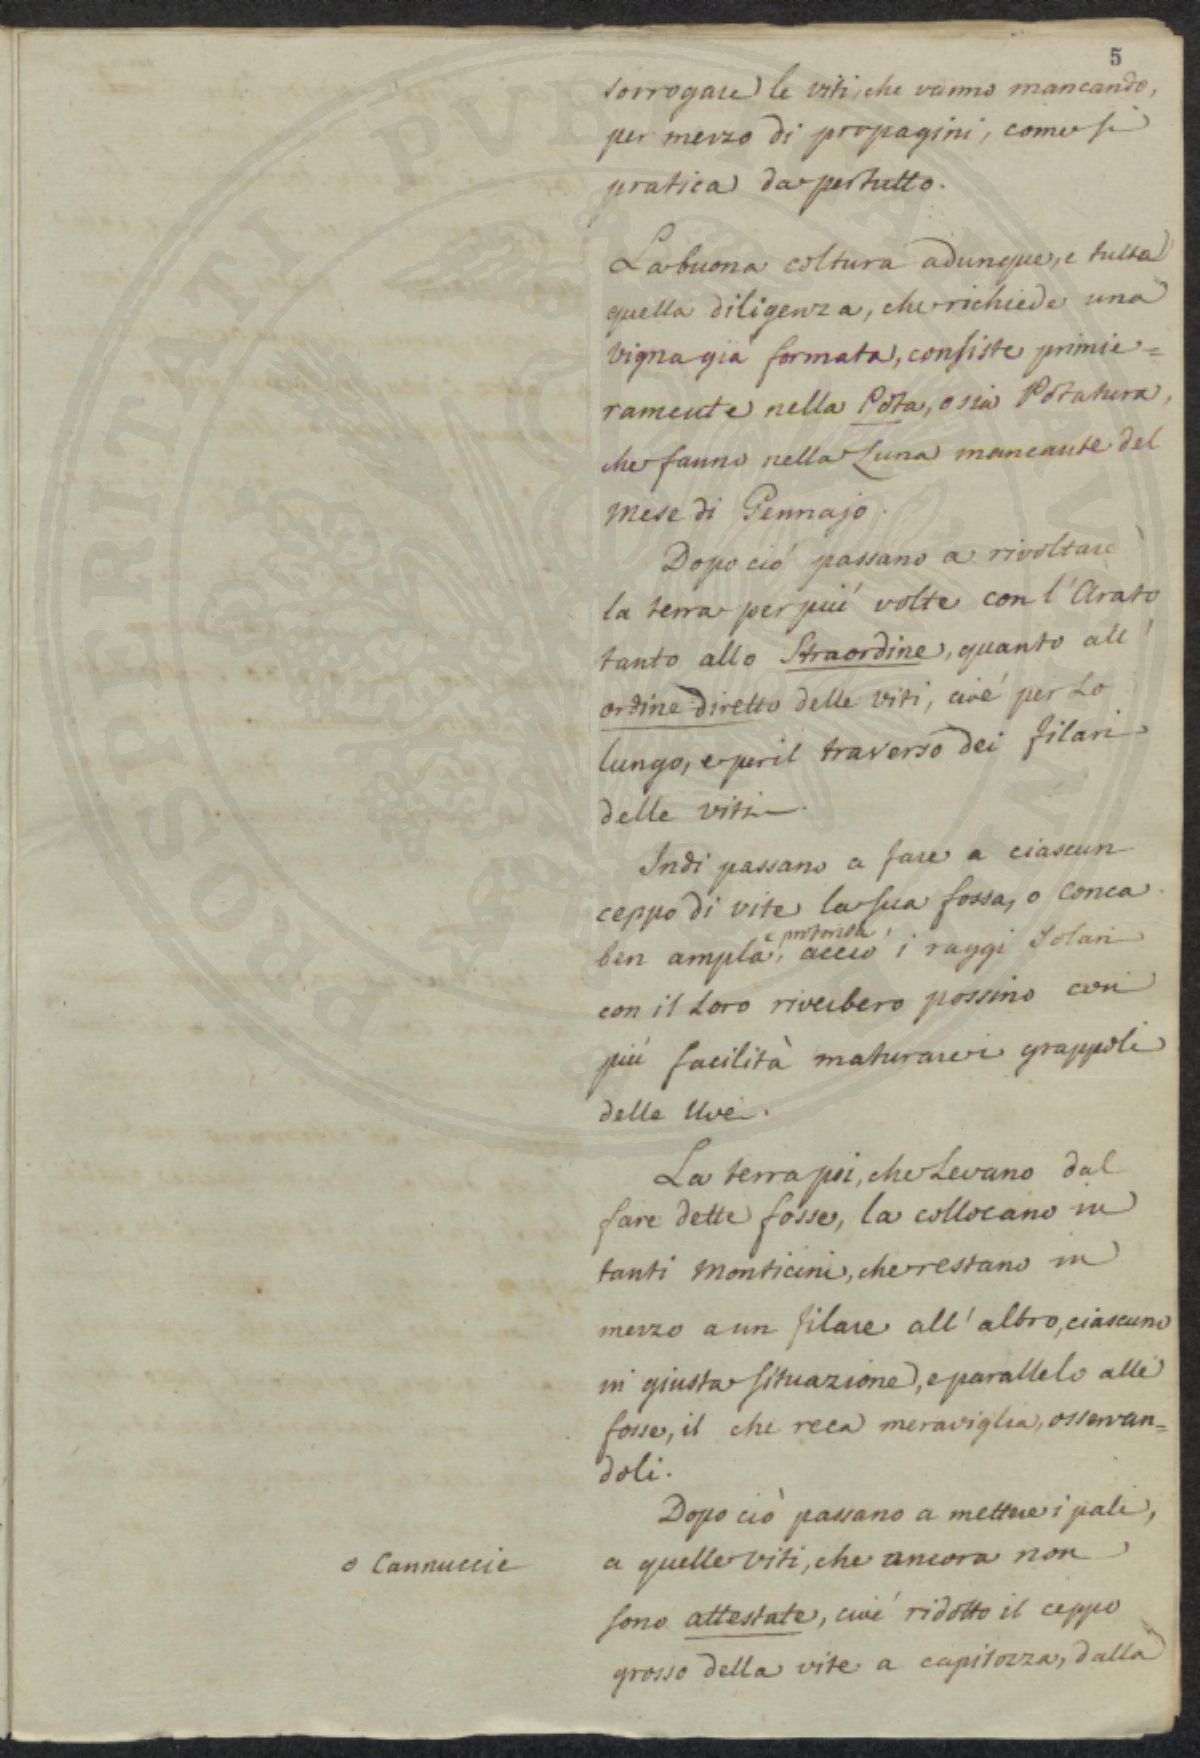 5
sorrogare le viti, che vanno mancando,
per mezzo di propagini, come si
pratica da per tutto.
La buona coltura adunque, e tutta
quella diligenza, che richiede una
vigna già formata, consiste primie=
ramente nella Pota, o sia Potatura,
che fanno nella Luna mancante del
mese di Gennajo.
Dopo ciò passano a rivoltare
la terra per più volte con l'Arato
tanto allo Straordine, quanto all'
ordine diretto delle viti, cioè per lo
lungo, e per il traverso dei filari
delle viti.
Indi passano a fare a ciascun
ceppo di vite la sua fossa, o Conca
e profonda,
ben ampla, acciò i raggi Solari
con il loro riverbero possino con
più facilità maturare i grappoli
delle Uve.
La terra poi, che levano dal
fare dette fosse, la collocano in
tanti Monticini, che restano in
mezzo a un filare all'altro, ciascuno
in giusta situazione, e parallelo alle
fosse, il che reca meraviglia, osservan=
doli.
Dopo ciò passano a mettere i pali,
o Cannuccie
a quelle viti, che ancora non
sono attestate, cioè ridotto il ceppo
grosso della vite a capitozza, dalla
SOSPERITATI PUBLICAE AU